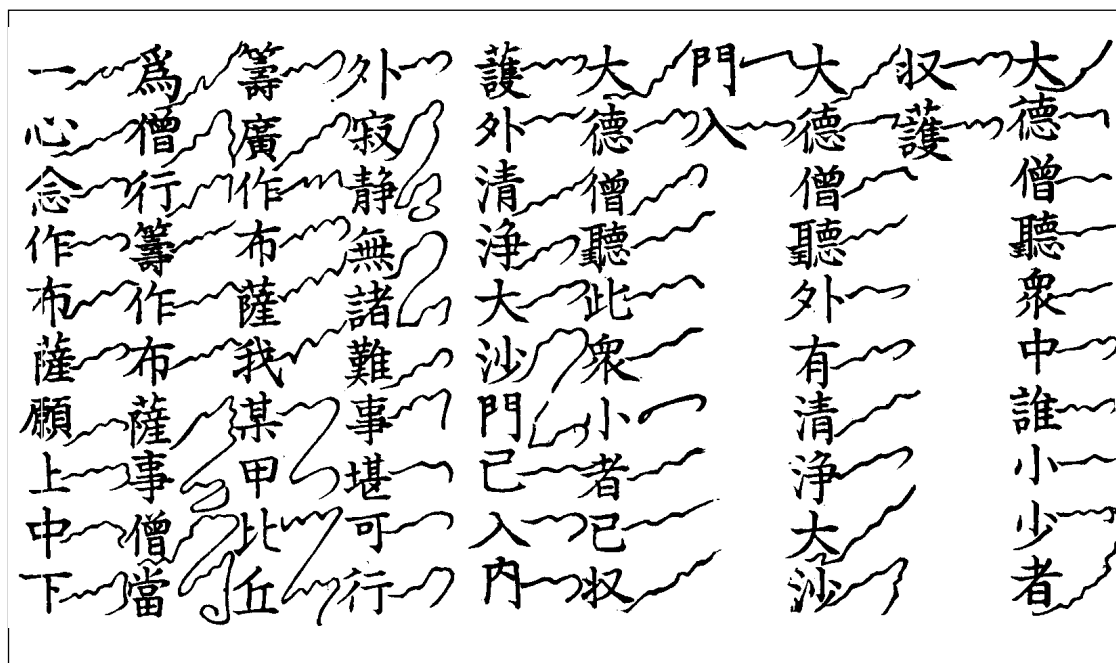 大德僧聽衆中誰小少者
収護
大德僧聽外有清浄大沙
門入
大德僧聽此衆小者已収
護外清浄大沙門已入内
外寂静無諸難事堪可行
籌廣作布薩我某甲比丘
爲僧行籌作布薩事僧當
一心念作布薩願上中下